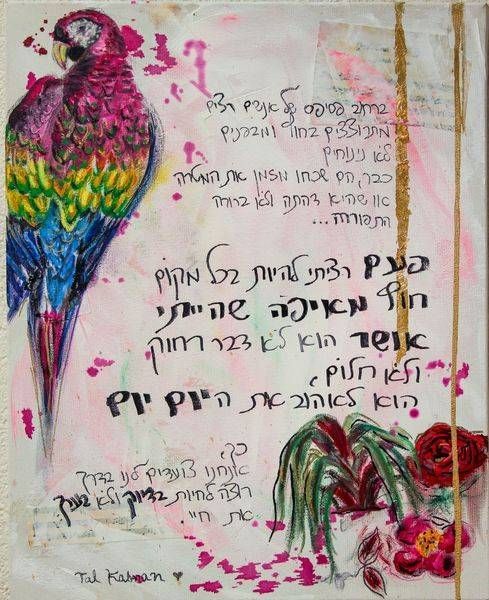 ברחוב פסיפס של אנשים רצים
מתרוצצים בחוץ ומבפנים
לא נינוחים
כבר, הם שכחו מזמן את המטרה
או שהיא דהתה ולא ברורה
התפוררה...
פעם רציתי להיות בכל מקום
חוץ מאיפה שהייתי
אושר הוא לא דבר רחוק
ולא חלום,
הוא לאהוב את היום יום
כך,
אנחנו צועדים לנו בדרך
רוצה לחיות בדיוק ולא בערך
את חיי.
Tal Kalman